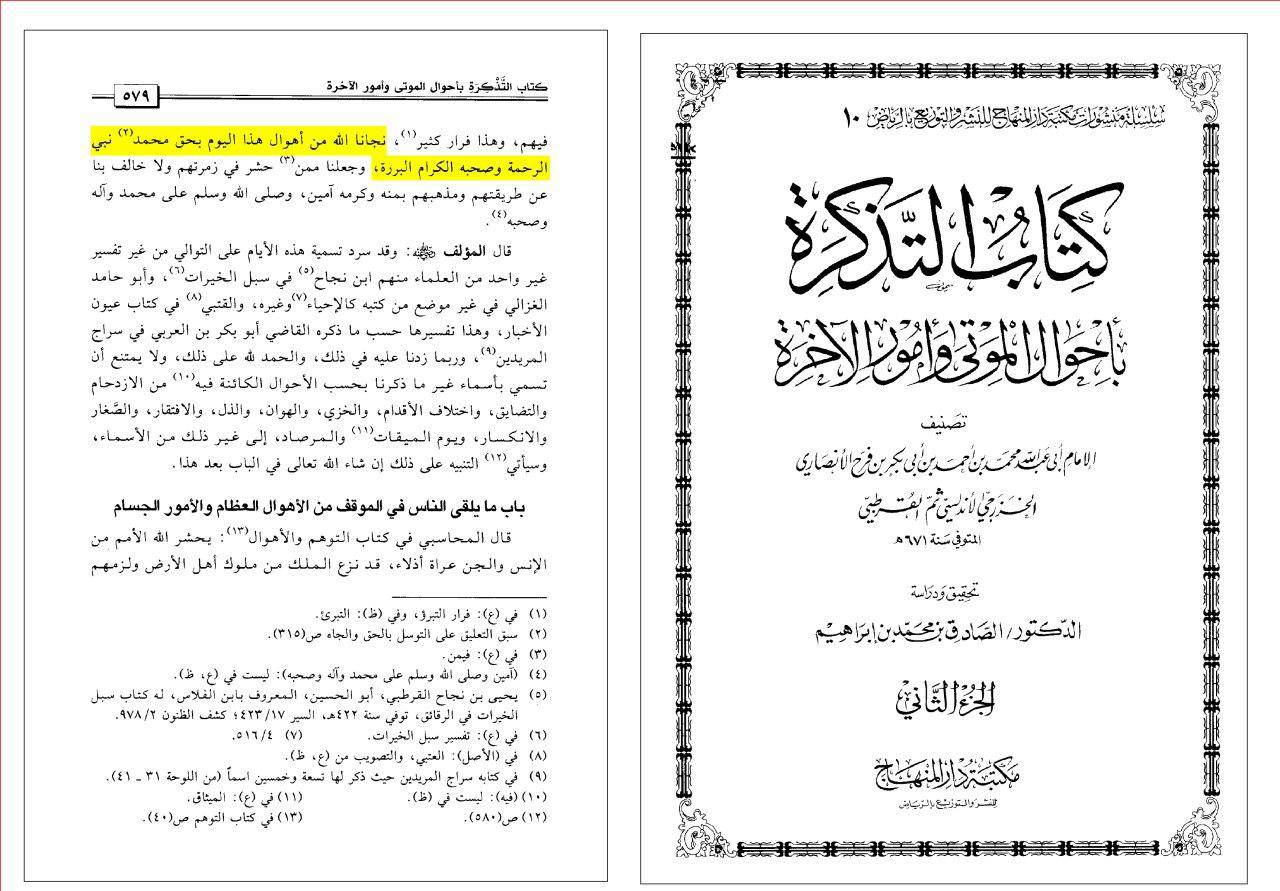 سلسلة منشورات مكتبة دار المنهاج للنشر والتوزيع بالرياض ١٠
كتاب التذكرة
بأحوال الموتى وأمور الآخرة
تصنيف
الإمام أبي عبد الله محمد بن أحمد بن أبي بكر بن فرح الأنصاري
الخزرجي الأندلسي ثم القرطبي
المتوفى سنة ٦٧١هـ
تحقيق ودراسة
الدكتور/ الصادق بن محمد بن إبراهيم
الجزء الثاني
مكتبة دار المنهاج
للنشر والتوزيع بالرياض
كتاب التَّذْكِرَةِ بأحوال الموتى وأمور الآخرة
٥٧٩
فيهم، وهذا فرار كثير(١)، نجانا الله من أهوال هذا اليوم بحق محمد(٢) نبي
الرحمة وصحبه الكرام البررة، وجعلنا ممن(٣) حشر في زمرتهم ولا خالف بنا
عن طريقتهم ومذهبهم بمنه وكرمه آمين، وصلى الله وسلم على محمد وآله
وصحبه(٤).
قال المؤلف ﵁: وقد سرد تسمية هذه الأيام على التوالي من غير تفسير
غير واحد من العلماء منهم ابن نجاح(٥) في سبل الخيرات(٦)، وأبو حامد
الغزالي في غير موضع من كتبه كالإحياء(٧) وغيره، والقتبي(٨) في كتاب عيون
الأخبار، وهذا تفسيرها حسب ما ذكره القاضي أبو بكر بن العربي في سراج
المريدين(٩)، وربما زدنا عليه في ذلك، والحمد لله على ذلك، ولا يمتنع أن
تسمي بأسماء غير ما ذكرنا بحسب الأحوال الكائنة فيه(١٠) من الازدحام
والتضايق، واختلاف الأقدام، والخزي، والهوان، والذل، والافتقار، والصَّغار
والانكسار، ويوم الميقات(١١) والمرصاد، إلى غير ذلك من الأسماء،
وسيأتي(١٢) التنبيه على ذلك إن شاء الله تعالى في الباب بعد هذا.
باب ما يلقى الناس في الموقف من الأهوال العظام والأمور الجسام
قال المحاسبي في كتاب التوهم والأهوال(١٣): يحشر الله الأمم من
الإنس والجن عراة أذلاء، قد نزع الملك من ملوك أهل الأرض ولزمهم
(١) في (ع): فرار التبرؤ، وفي (ظ): التبرئ.
(٢) سبق التعليق على التوسل بالحق والجاه ص(٣١٥).
(٣) في (ع): فيمن.
(٤) (آمين وصلى الله وسلم على محمد وآله وصحبه): ليست في (ع، ظ).
(٥) يحيى بن نجاح القرطبي، أبو الحسين، المعروف بابن الفلاس، له كتاب سبل
الخيرات في الرقائق، توفي سنة ٤٢٢هـ، السير ٤٢٣/١٧؛ كشف الظنون ٩٧٨/٢.
(٦) في (ع): تفسير سبل الخيرات. (٧) ٥١٦/٤.
(٨) في (الأصل): العتبي، والتصويب من (ع، ظ).
(٩) في كتابه سراج المريدين حيث ذكر لها تسعة وخمسين اسماً (من اللوحة ٣١ ـ ٤١).
(١٠) (فيه): ليست في (ظ). (١١) في (ع): الميثاق.
(١٢) ص(٥٨٠). (١٣) في كتاب التوهم ص(٤٠).